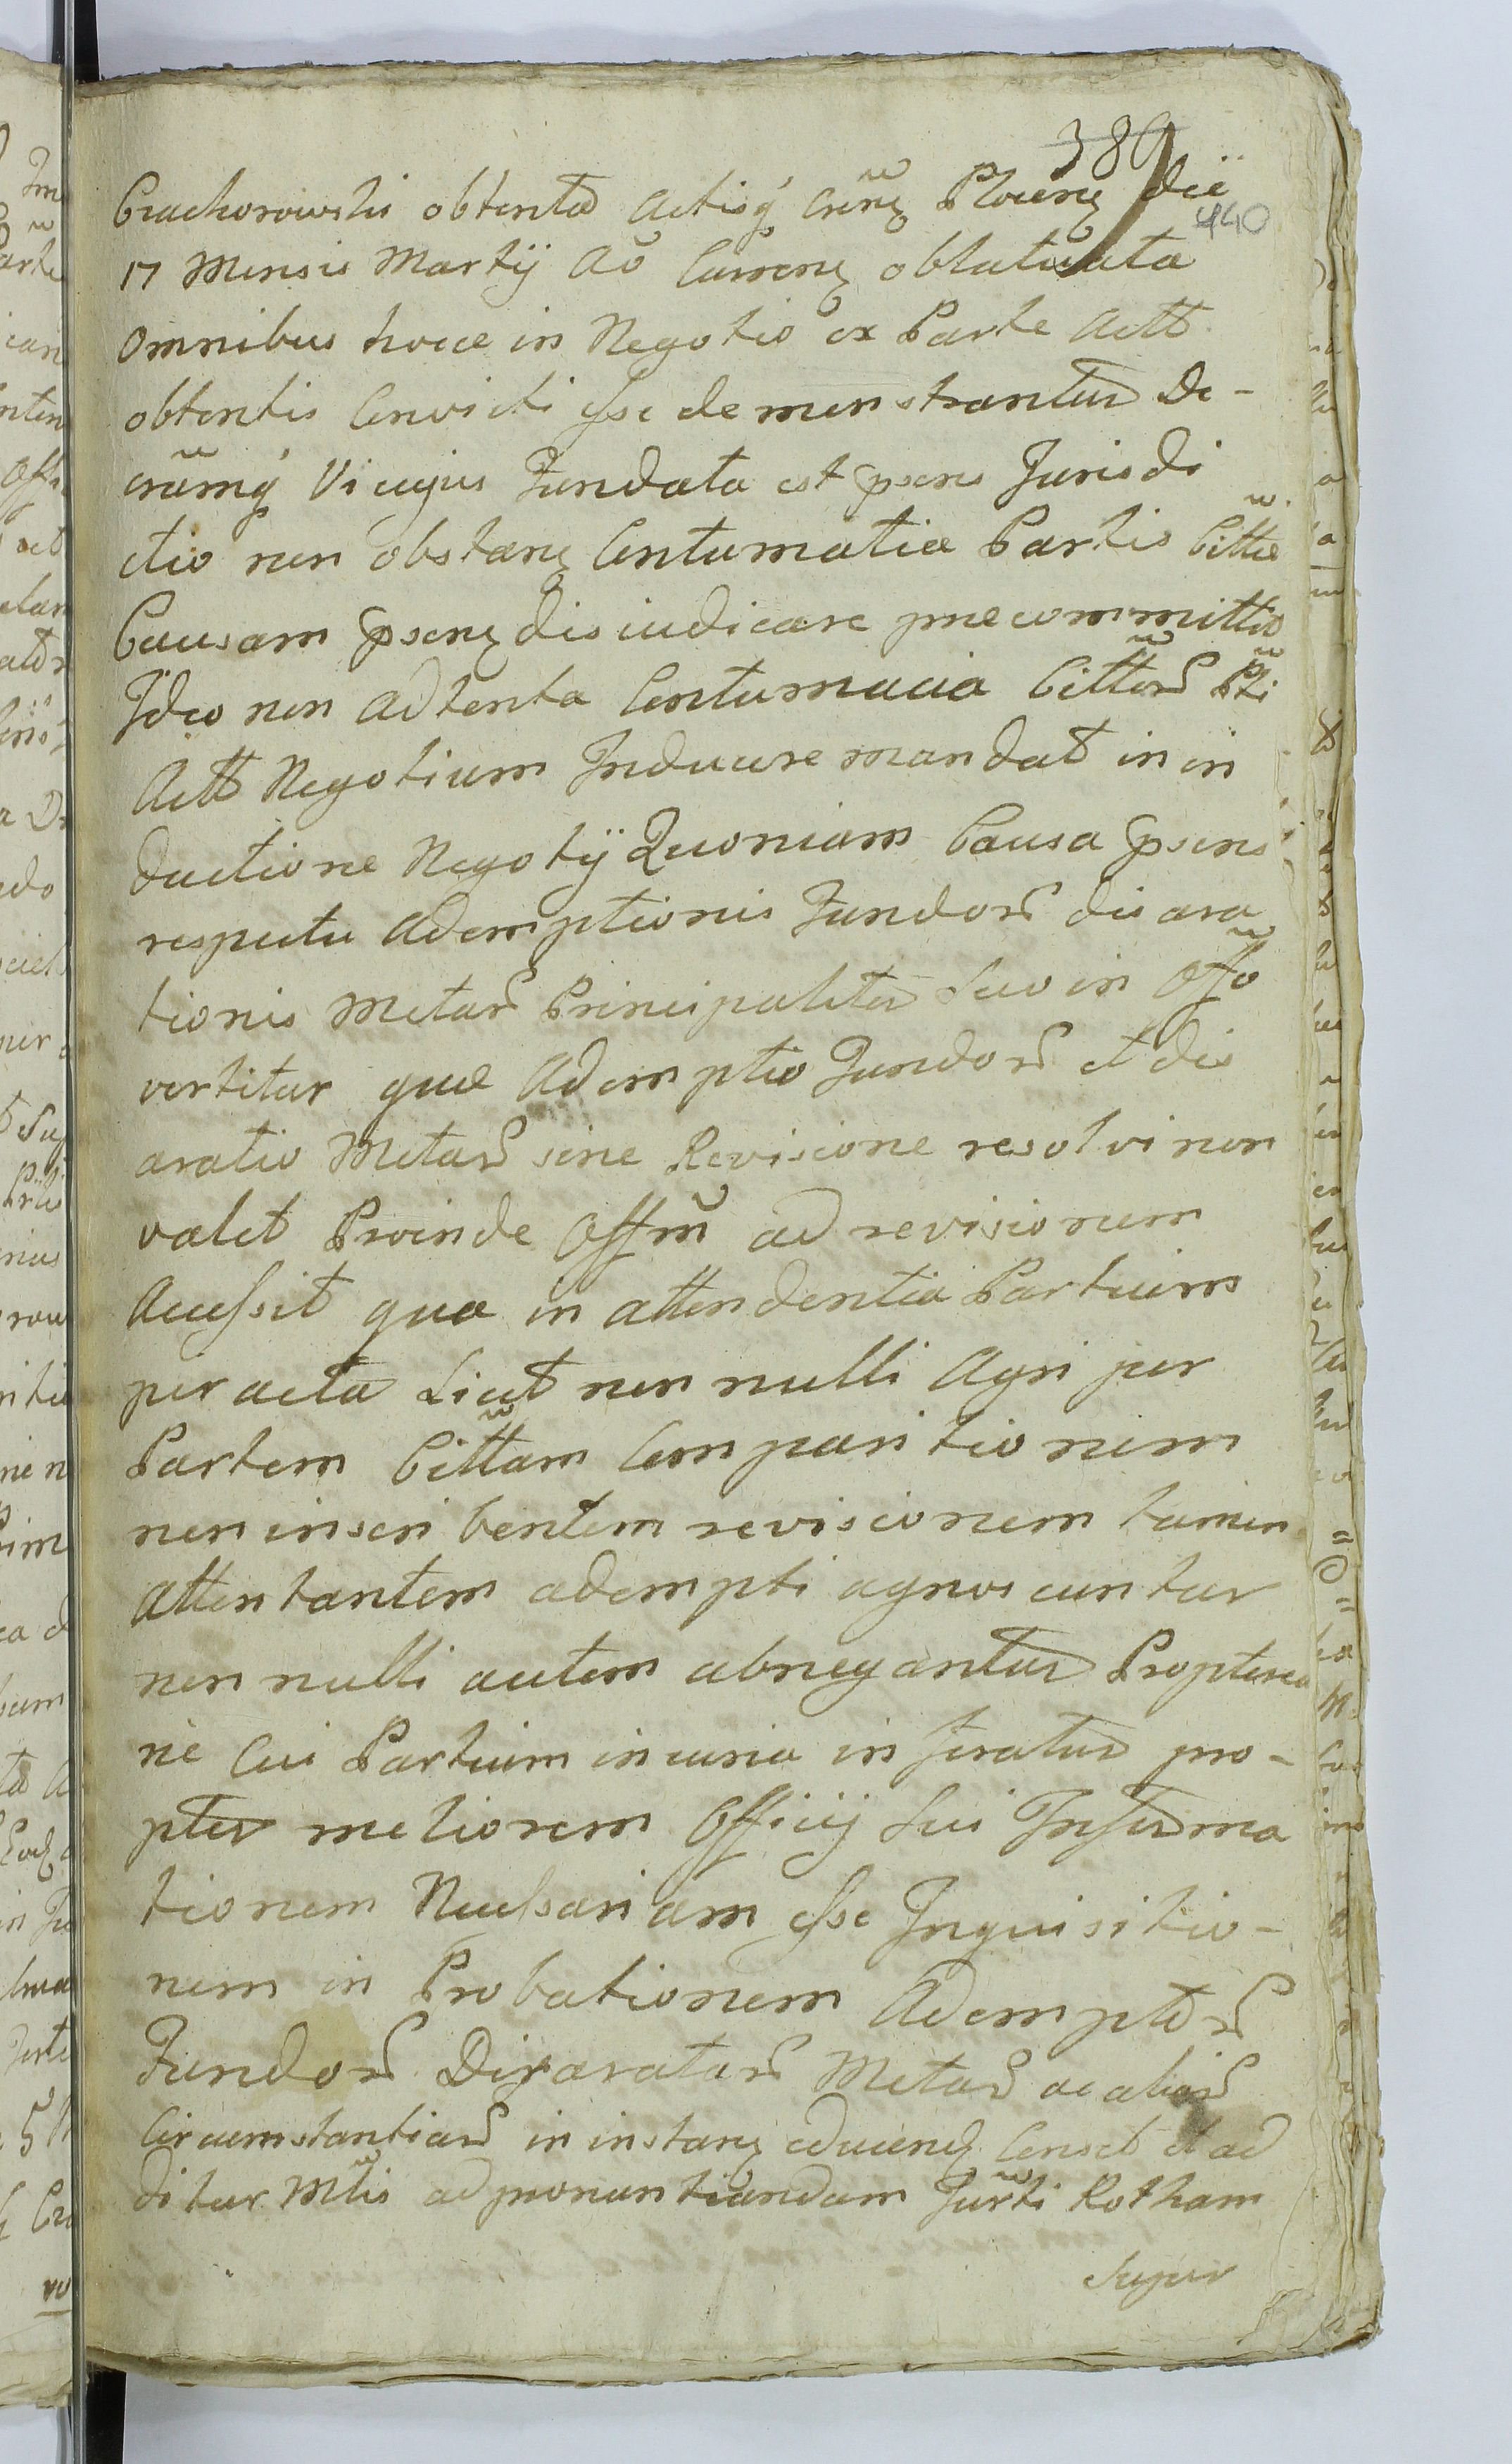 389
440
Czachorowski obtenta Actisq́ Crēns Plocens die
17 Mensis Martÿ Aō Currens oblatata
omnibus hocce in Negotio ex Parte Actt
obtentis Convicti esse demonstrantur De-
crētmq́ Vi cujus Fundata est psens Jurisdi
ctio non obstans Contumatia Partis Citttae
Causam psens disiudicare praecommittit
Ideo non adtenta Contumacia Cittor Pti
Actt Negotium Inducere mandat in in
ductione Negotÿ Quoniam Causa psens
respectu Ademptionis Fundor disara
tionis Metar Principaliter suo in Effo
vertitur quae Ademptio Fundor et dis
aratio Metar sine Revisione resolvi non
valet Proinde Offm̄ ad revisionem
Accessit qua in attendentia Partium
peracta Licet non nulli Agri per
Partem Cittam Comparitionem
non inscribentem revisionem tamen
attentantem adempti agnoscuntur
non nulli autem abnegantur Propterea
ne Cui Partium incuria inferatur pro-
pter meliorem Officij sui Informa
tionem Necessariam esse Inquisitio-
nem in Probationem Ademptor
Fundor Disaratar Metar ac aliar
Circumstantiar in instans educend Censet et ad
ditur Mtis ad pronuntiandam Jurti Rotham
super